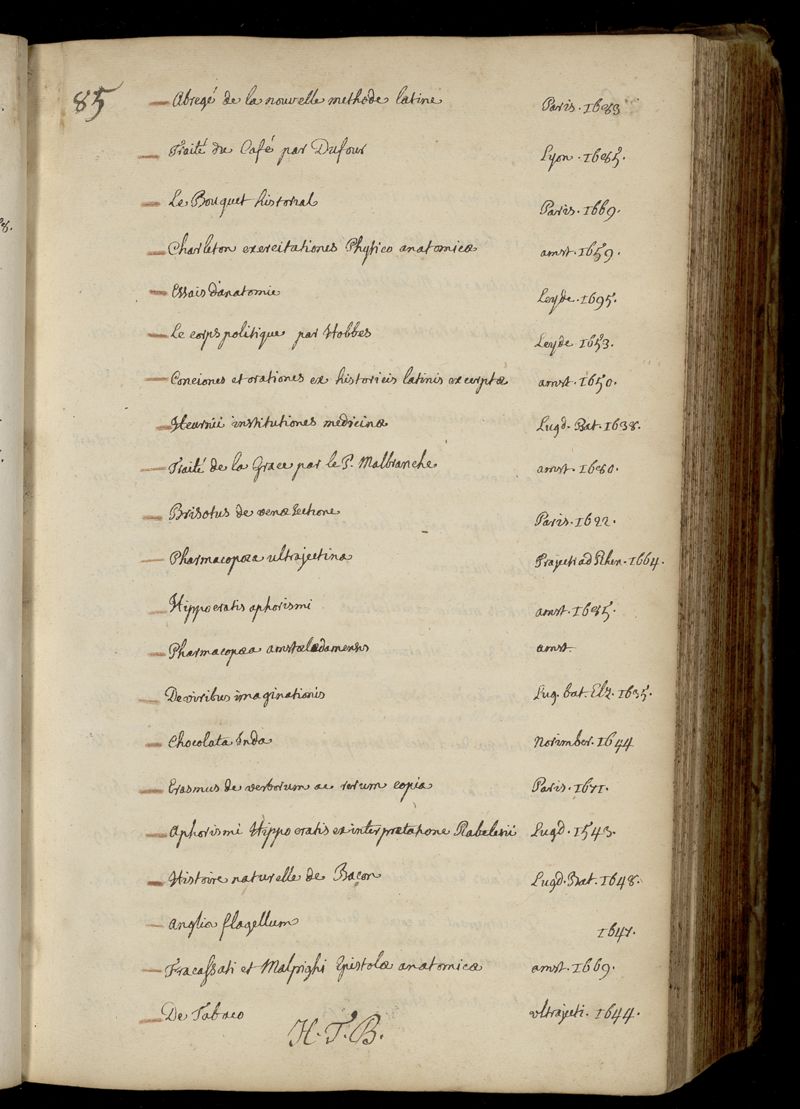 85
Abregé de la nouvelle methode latine Paris. 1683
Traité du Café par Dufour Lyon. 1685.
Le Bouquet historial Paris. 1669.
Charleton exercitationes Physico anatomicæ amst. 1659.
Essais d'anatomie Leyde. 1695.
Le corps politique par Hobbes Leyde 1653.
Conciones et orationes ex historicis latinis excerptæ amst. 1650.
Heurnii institutiones medicinæ Lugd. Bat. 1638.
Traité de la Grace par le P. Malbranche amst. 1680.
Brisotus de venæ sectione Paris. 1622.
Pharmacopæa ultrajectina Trajecti ad Rhen. 1664.
Hippocratis aphorismi amst. 1685.
Pharmacopæa amstælædamensis amst.
De viribus imaginationis Lug. bat. Elz. 1635.
Chocolata Inda Norimber. 1644
Erasmus de verborum ac rerum copia Paris. 1671.
Aphorismi Hippocratis ex interprætatione Rabelesii Lugd. 1543.
Histoire naturelle de Bacon Lugd. Bat. 1648.
Angliæ flagellum 1647.
Fracassati et Malpighi Epistolæ anatomicæ amst. 1669.
De Tabaco ultrajecti. 1644.
H. T. B.